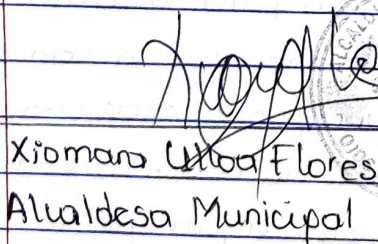 ALCALD
Xiomara Ulloa Flores
Alcaldesa Municipal